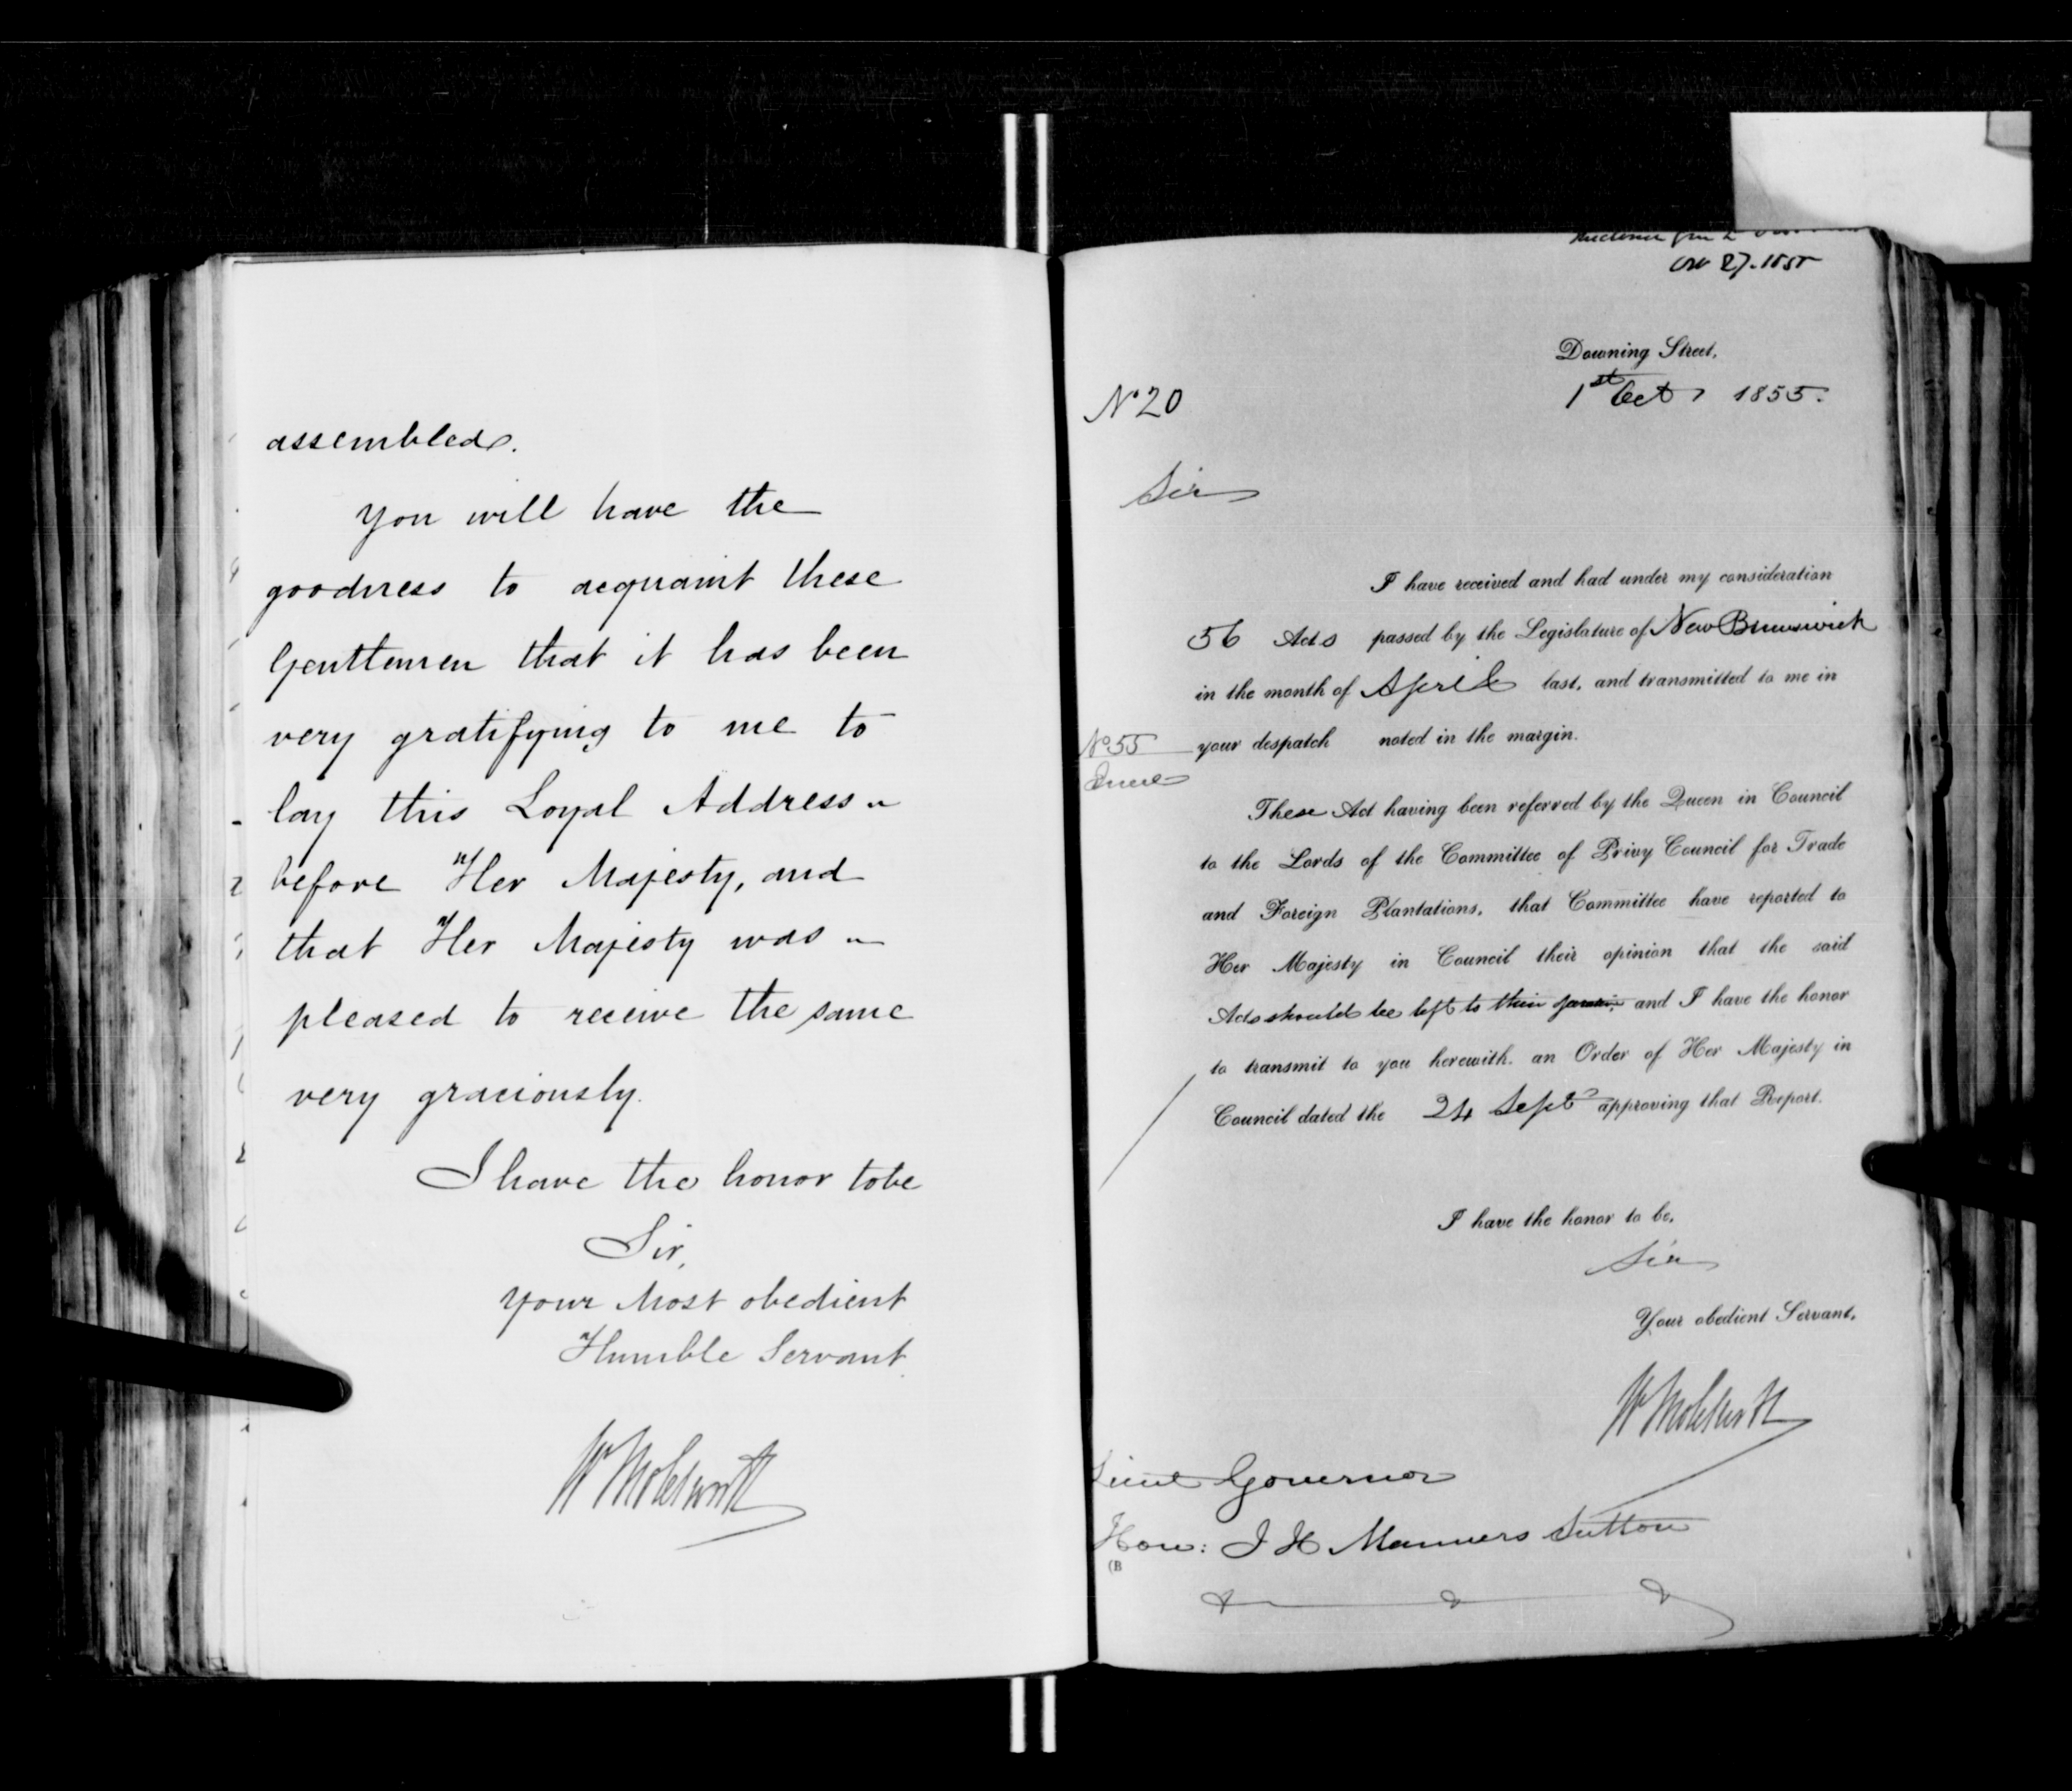 assembled.
You will have the
goodness to acquaint these
Gentlemen that it has been
very gratifying to me to
lay this Loyal Address
before Her Majesty, and
that Her Majesty was
pleased to receive the same
very graciously.
I have the honor to be
Sir,
Your Most obedient
Humble Servant
W Molesworth
27. 1855
Downing Street,
1st Oct 1855.
No 20
Sir
I have received and had under my consideration
56 Acts passed by the Legislature of New Brunswick
in the month of April last, and transmitted to me in
No 55 your despatch noted in the margin.
June
These Act having been referred by the Queen in Council
to the Lords of the Committee of Privy Council for Trade
and Foreign Plantations, that Committee have reported to
Her Majesty in Council their opinion that the said
Acts should be left to their and I have the honor
to transmit to you herewith, an Order of Her Majesty in
Council dated the 24 Sept approving that Report.
I have the honor to be,
Sir
Your obedient Servant,
W Molesworth
Lieut Governor
Hon: J H Manners Sutton
(B